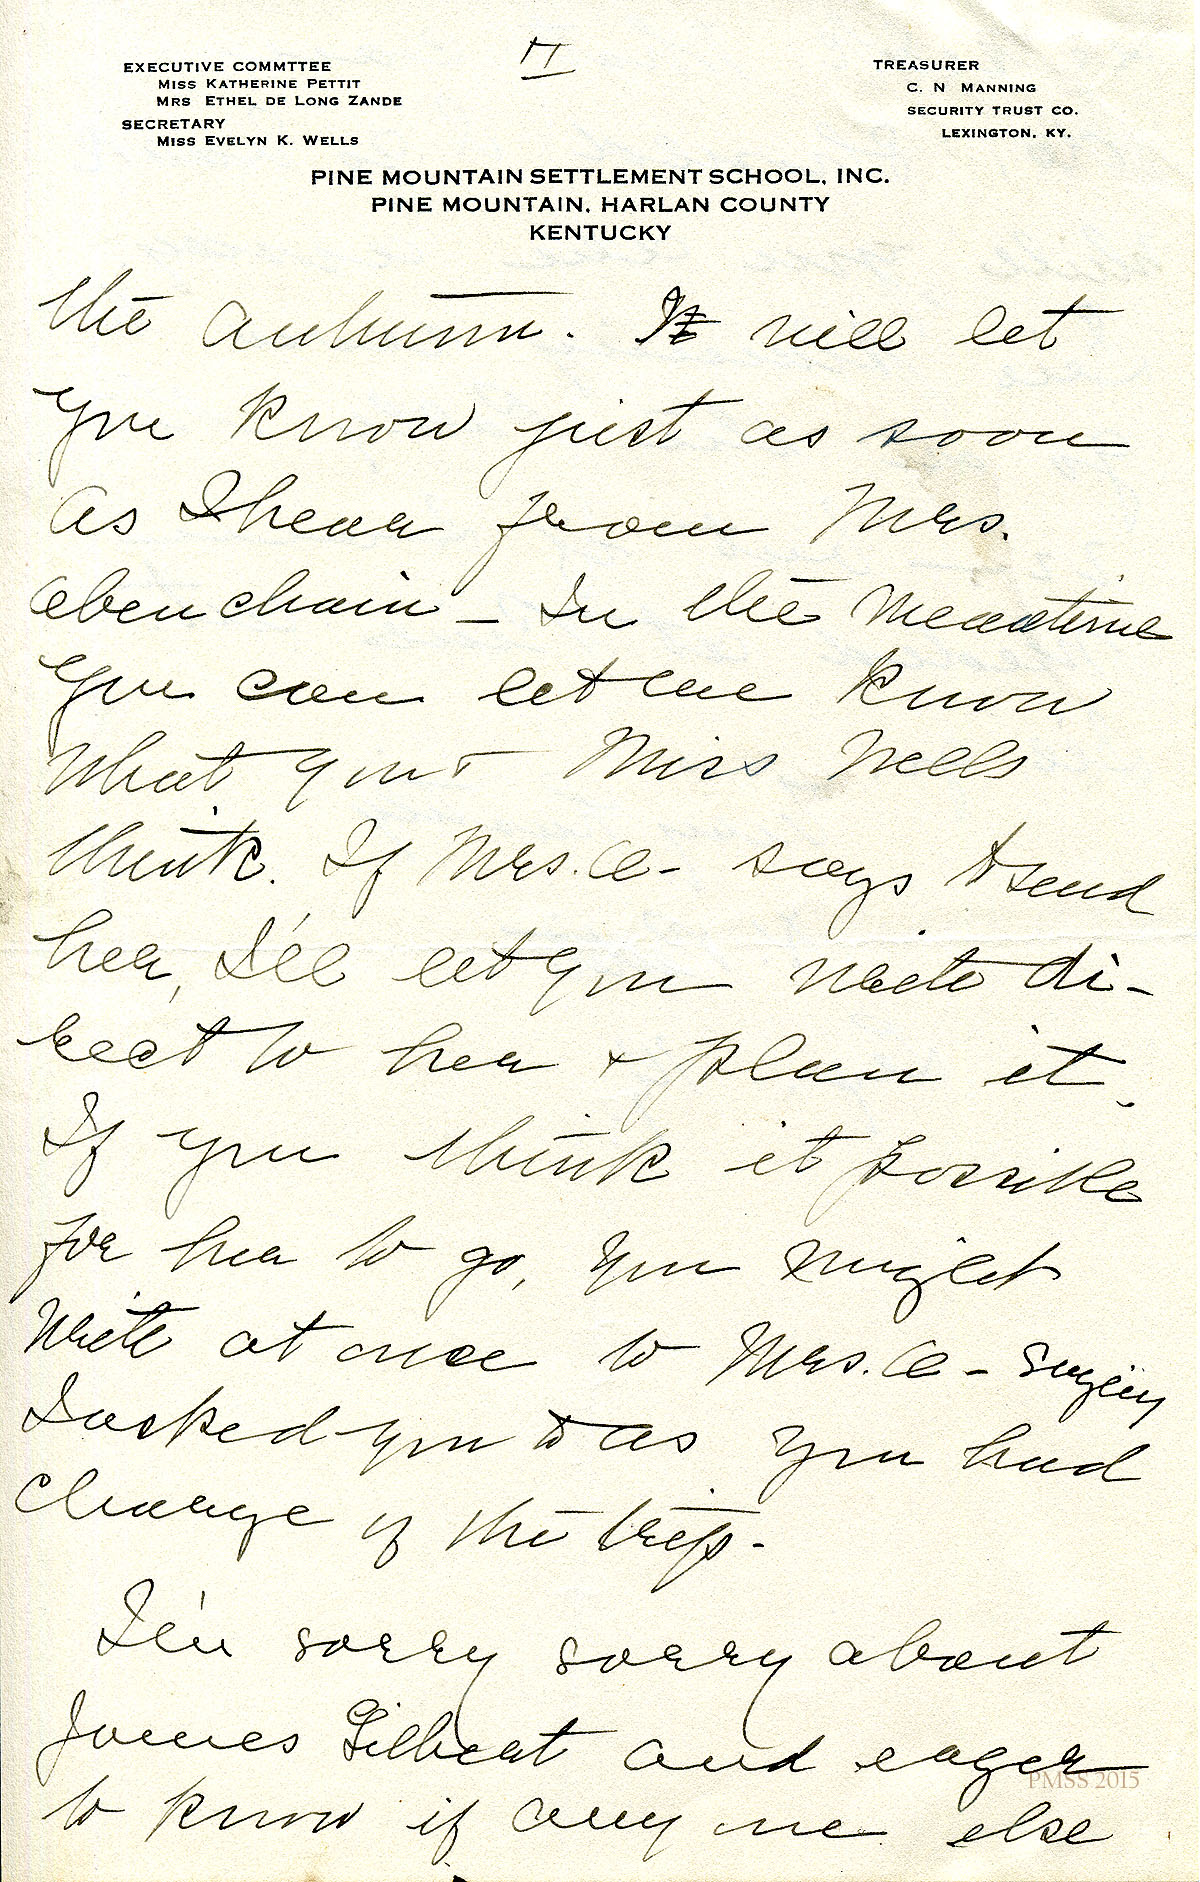 II
EXECUTIVE COMMTTEE
MISS KATHERINE PETTIT
MRS ETHEL DE LONG ZANDE
SECRETARY
MISS EVELYN K. WELLS
TREASURER
C. N MANNING
SECURITY TRUST CO.
LEXINGTON, KY.
PINE MOUNTAIN SETTLEMENT SCHOOL, INC.
PINE MOUNTAIN, HARLAN COUNTY
KENTUCKY
the autumn. I will let
you know just as soon
as I hear from Mrs.
Obenchain - In the meantime
you can let me know
what you + Miss Wells
think. If Mrs. O- says to send
her, I'll let you write di-
rect to her + plan it.
If you think it possible
for her to go, you might
write at once to Mrs. O - saying
I asked you to as you had
charge of the trip.
I'm sorry sorry about
James Gilbert and eager
to know if any one else
PMSS 2015